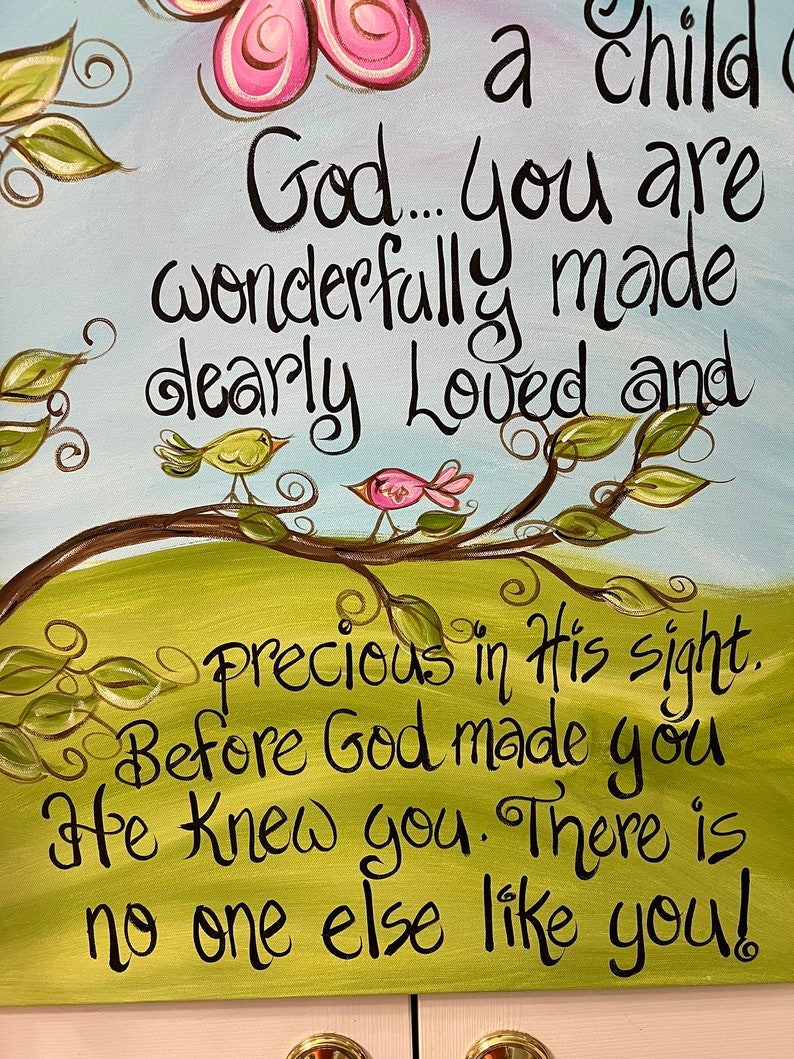 a child
God... you are
wonderfully made
dearly Loved and
precious in His sight.
Before God made you
He Knew you. There is
no one else like you!